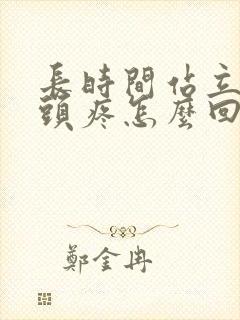 長時間佔立
頭疼怎麼回
鄭金冉